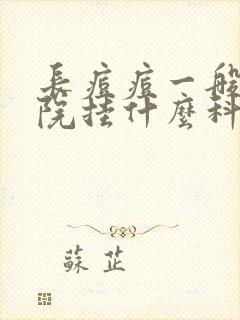 長痘痘一般
院掛什麼科
蘇芷